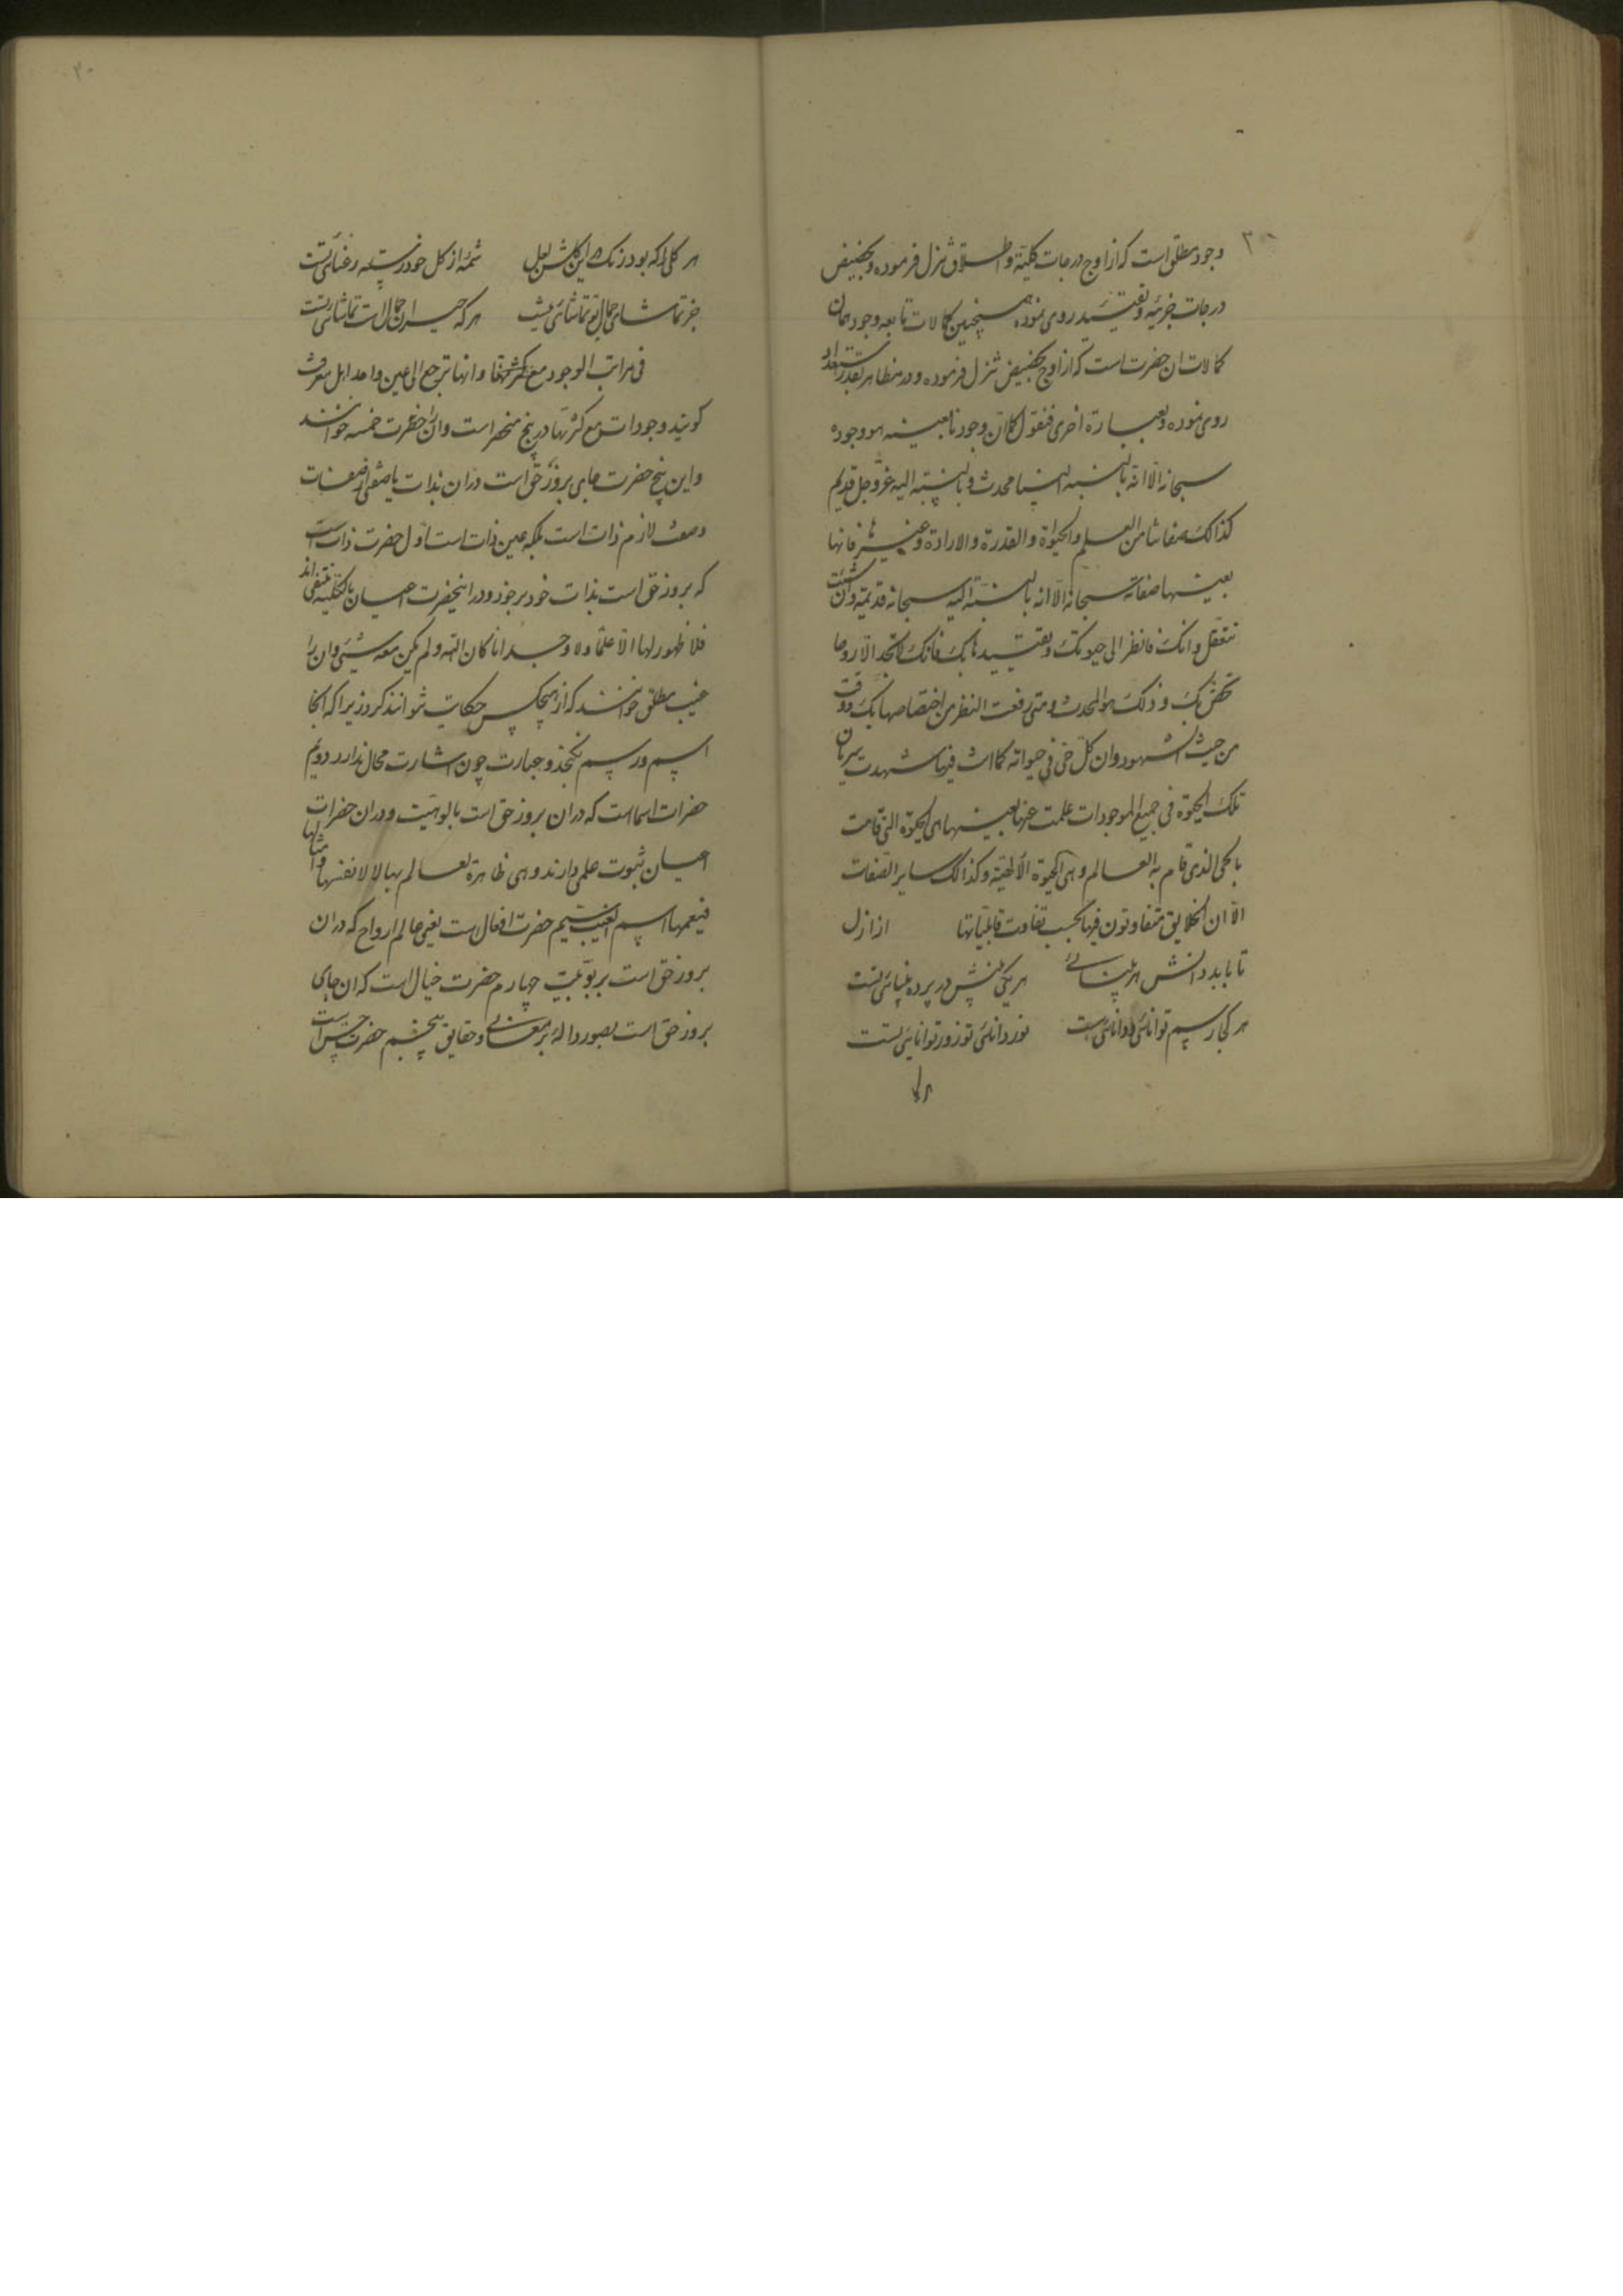 وجود مطلق است که از اوج درجات کلیة و اطلاق تنزل فرموده و بحضیض
درجات جزئیه و تقیید روی نموده همچنین کمالات تابعه وجود همان
کمالات ان حضرت است که از اوج بحضیض تنزل فرموده و در مظاهر بقدر استعداد
روی نموده و بعبارة اخری فنقول کما ان وجودنا بعینه هو وجوده
سبحانه الا انه بالنسبة الینا محدث و بالنسبة الیه عز و جل قدیم
کذالک صفاتنا من العلم و الحیوة و القدرة و الارادة و غیرها فانها
بعینها صفاته سبحانه الا انه بالنسبة الیه سبحانه قدیمة و ان شئت
تتعقل ذالک فانظر الی حیوتک و تقییدها بک فانک لا تجد الا روحا
تختص بک و ذلک هو المحدث و متی رفعت النظر من اختصاصها بک و ذقت
من حیث الشهود ان کل حی فی حیوته کما انت فیها شهدت سریان
تلک الحیوة فی جمیع الموجودات علمت عنها بعینها هی الحیوة التی قامت
بالحی الذی قام به العالم و هی الحیوة الالهیة و کذالک سایر الصفات
الا ان الخلایق متفاوتون فیها بحسب تفاوت قابلیاتها از ازل
تا بابد دانش هر بینائی هر یکی بینش در پرده بینائی تست
هر کجا رسم توانائی و دانائی هست نور دانائی تو زور توانایی تست
۲۰
هر کلی را که بود رنگ در این گلشن لعل شمه از کل خود رسته رعنائی تست
جز تماشای جمال تو تماشائی نیست هر که حیران جمال است تماشائی تست
فی مراتب الوجود مع کثرتها و انها ترجع الی عین واحد اهل معرفت
گویند وجودات مع کثرتها در پنج منحصر است و ان را حضرت خمسه خوانند
و این پنج حضرت جای بروز حق است در ان بذات یا صفتی از صفات
وصف لازم ذات است بلکه عین ذات است اول حضرت ذات است
که بروز حق است بذات خود بر خود و در اینحضرت اعیان بالکلیه منتفی اند
فلا ظهور لها الا علما و لا وجدانا کان الله و لم یکن معه شیئ و ان را
غیب مطلق خوانند که از هیچکس حکایت نتوانند کرد زیرا که انجا
اسم و رسم نگنجد و عبارت چون اشارت مجال ندارد دویم
حضرات اسما است که در ان بروز حق است بالوهیت و در ان حضرات
اعیان ثبوت علمی دارند و هی ظاهرة لعالم بها لا لانفسها و امثالها
فیعمها اسم الغیب سیم حضرت افعال است یعنی عالم ارواح که در ان
بروز حق است بربوبیت چهارم حضرت خیال است که ان جای
بروز حق است بصور دالة بر معانی و حقایق پنجم حضرت حس است